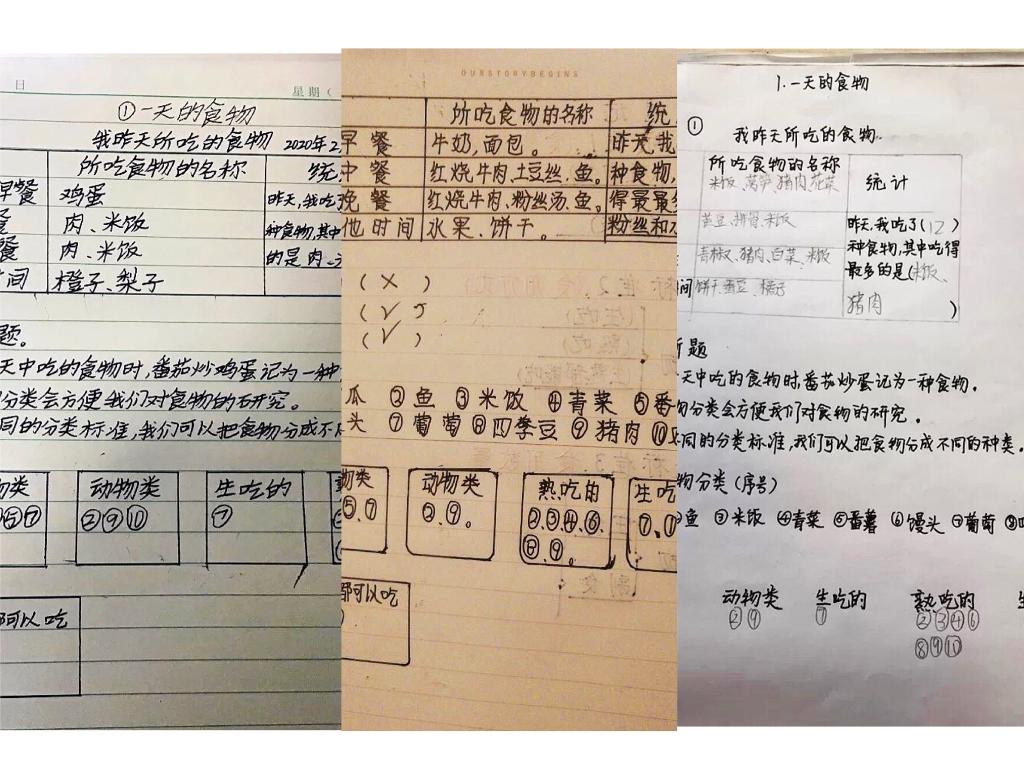 日
星期(
①一天的食物
我昨天所吃的食物 2020年2
所吃食物的名称 统
早餐 鸡蛋 昨天,我吃了
餐 肉、米饭 种食物,其中
餐 肉、米饭 的是肉、
间 橙子、梨子
题。
天中吃的食物时,番茄炒鸡蛋记为一种
分类会方便我们对食物的研究。
同的分类标准,我们可以把食物分成不
物类 动物类 生吃的
⑤⑦ ②⑨⑩ ⑦
都可以吃
OURSTORYBEGINS
所吃食物的名称 统
早餐 牛奶,面包。 昨天,我
中餐 红烧牛肉、土豆丝、鱼。 种食物,
晚餐 红烧牛肉、粉丝汤、鱼。 得最最
他时间 水果、饼干。 粉丝和
(×)
(√)
(√)
瓜 ②鱼 ③米饭 ④青菜 ⑤番
头 ⑦葡萄 ⑧四季豆 ⑨猪肉 ⑩
物类 动物类 熟吃的 生吃
⑤、⑦ ②、⑨。 ②、③、④、⑥、 ⑦、
⑧、⑨、。
都可以吃
1.一天的食物
①
我昨天所吃的食物.
所吃食物的名称 统计
米饭、莴笋、猪肉、花菜
黄豆、排骨、米饭 昨天,我吃了(12)
青椒、猪肉、白菜、米饭 种食物,其中吃得
间 饼干、蚕豆、橘子 最多的是(米饭、
猪肉 )
题
天中吃的食物时番茄炒蛋记为一种食物.
物分类会方便我们对食物的研究.
不同的分类标准,我们可以把食物分成不同的种类.
物分类(序号)
②鱼 ③米饭 ④青菜 ⑤番薯 ⑥馒头 ⑦葡萄 ⑧四
动物类 生吃的 熟吃的 生
②⑨ ⑦ ②③④⑥
⑧⑨⑩